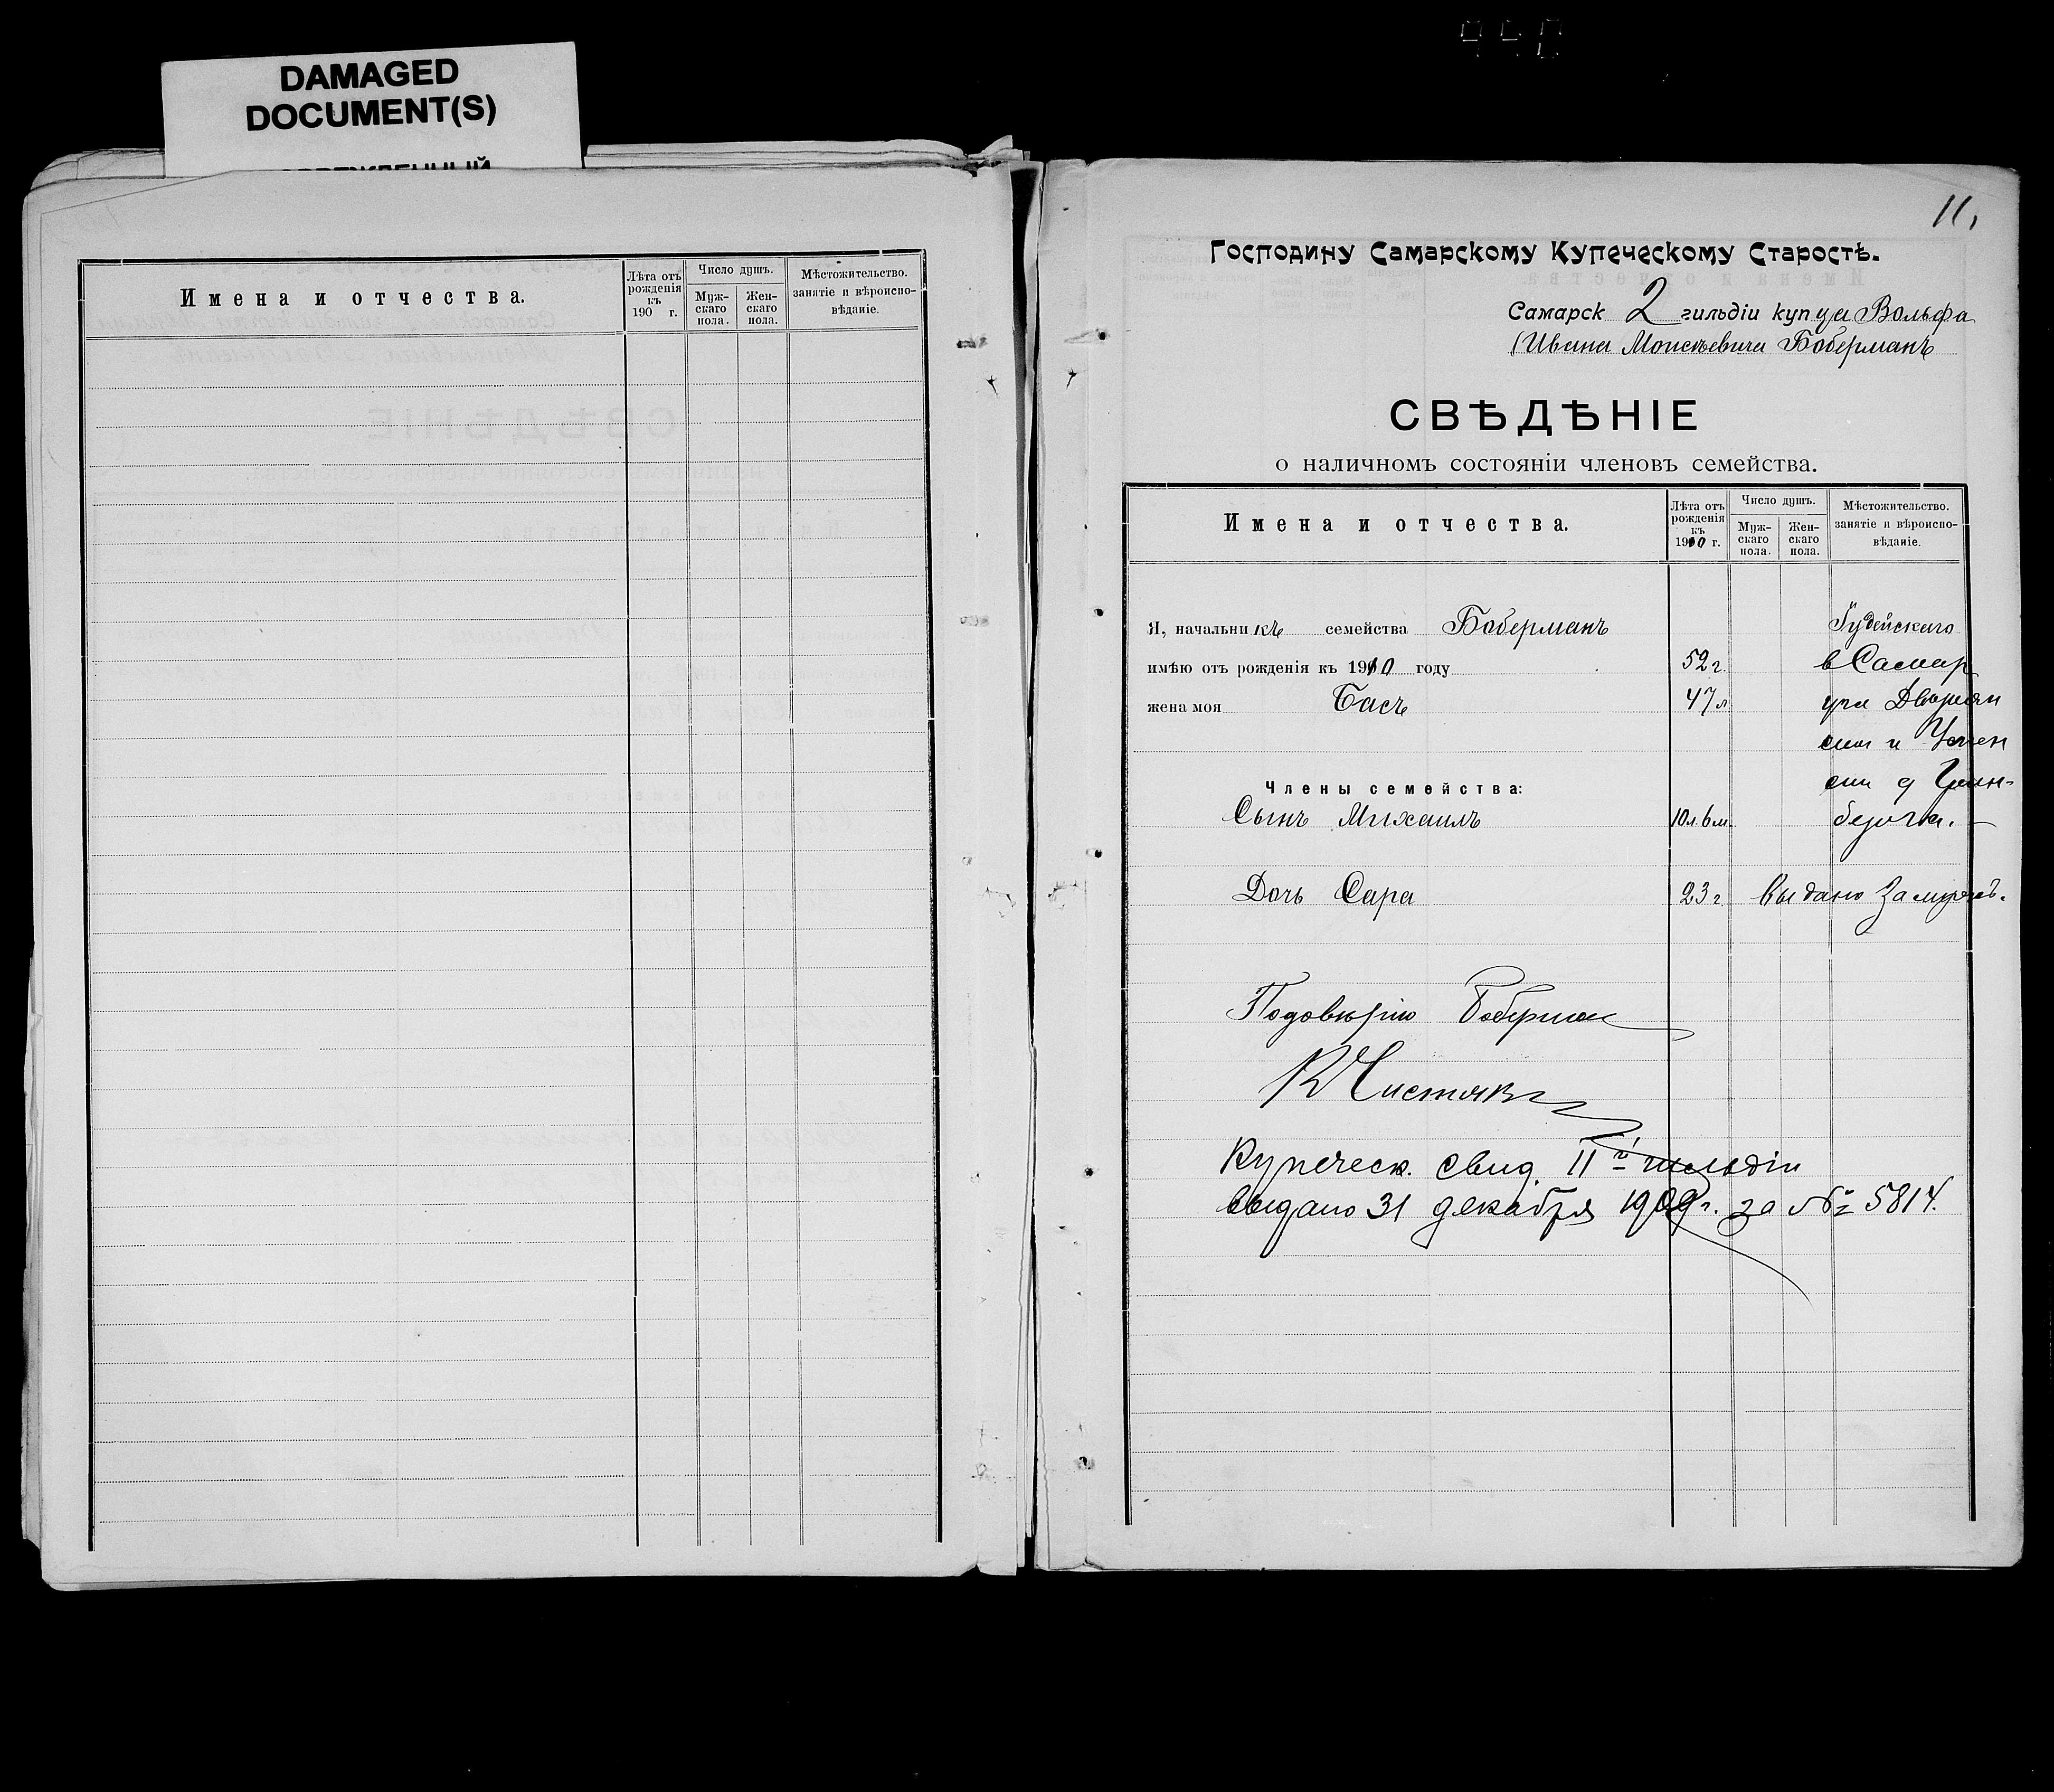 440
DAMAGED
DOCUMENT(S)
Имена и отчества.
Лѣта отъ рожденія къ 190 г.
Число душъ.
Муж-скаго пола.
Жен-скаго пола.
Мѣстожительство. занятіе и вѣроиспо-вѣданіе.
11,
Господину Самарскому Купеческому Старостѣ.
Самарск 2 гильдіи купца Вольфа
(Ивана Моисѣевича Боберманъ
СВѢДѢНІЕ
о наличномъ состояніи членовъ семейства.
Имена и отчества.
Лѣта отъ рожденія къ 1910 г.
Число душъ.
Муж-скаго пола.
Жен-скаго пола.
Мѣстожительство. занятіе и вѣроиспо-вѣданіе.
Я, начальникъ семейства Боберманъ Іудейскаго
имѣю отъ рожденія къ 1910 году 52 г. в Самар
жена моя Бася 47 л. Дворян
ской и Успен
ской д Грин-
Члены семейства:
Сынъ Михаилъ 10 л. 6 м. берга.
Дочь Сара 23 г. Выдано замужъ.
Подовѣрію Боберман
К Чистяков
Купеческ. свид. IIй гильдіи
выдано 31 декабря 1909 г. за № 5814.